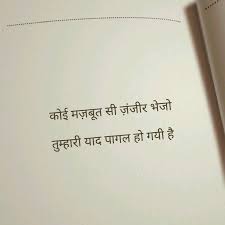 कोई मज़बूत सी ज़ंजीर भेजो
तुम्हारी याद पागल हो गयी है